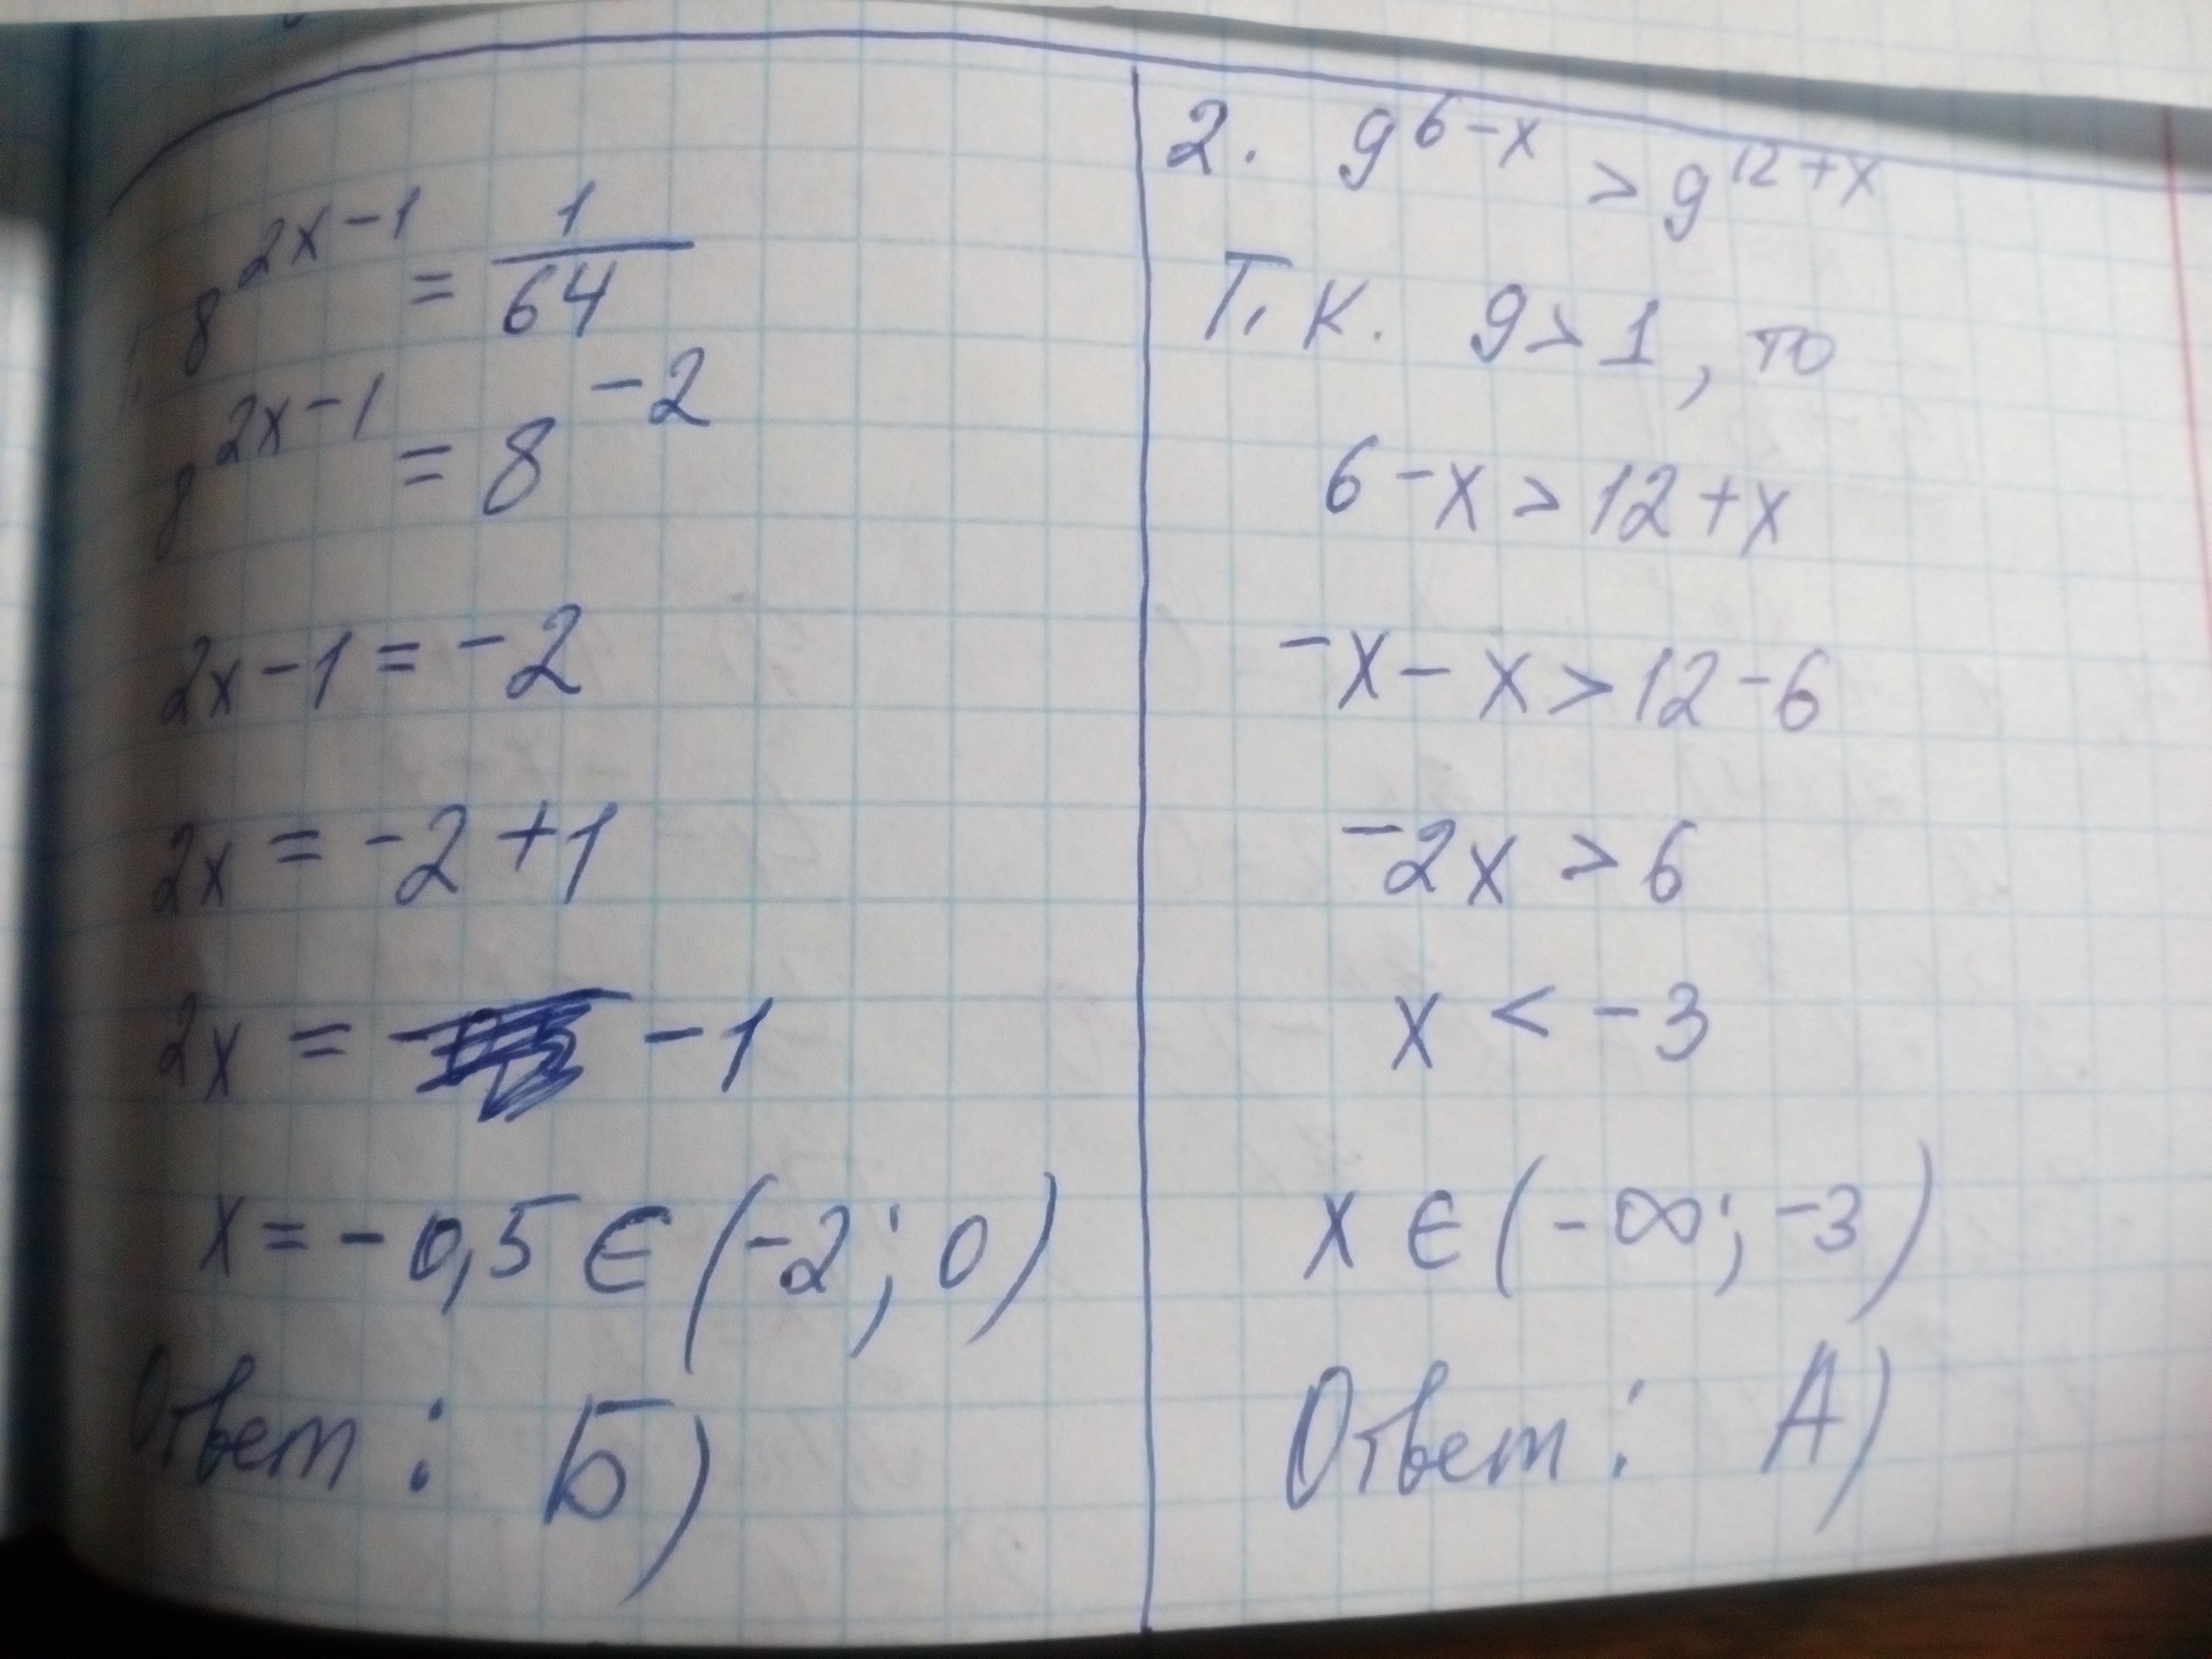 1. 8^{2x-1} = \frac{1}{64}
8^{2x-1} = 8^{-2}
2x-1 = -2
2x = -2+1
2x = -1
x = -0,5 ∈ (-2; 0)
Ответ: Б)
2. 9^{6-x} > 9^{12+x}
Т.к. 9>1, то
6-x > 12+x
-x-x > 12-6
-2x > 6
x < -3
x ∈ (-∞; -3)
Ответ: А)